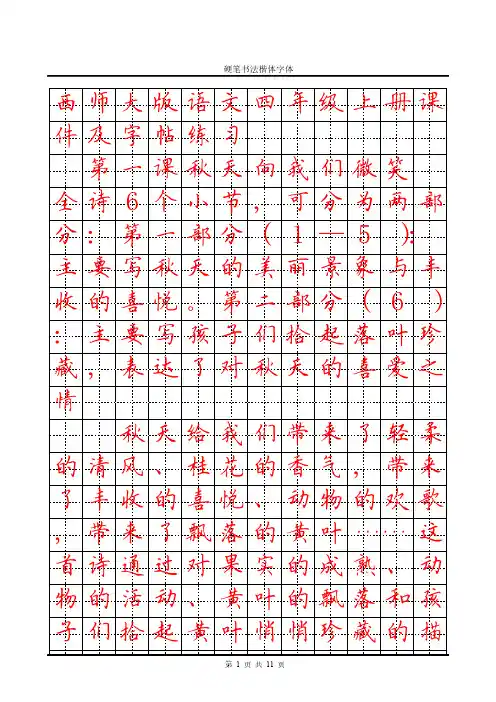 硬笔书法楷体字体
西师大版语文四年级上册课
件及字帖练习
第一课秋天向我们微笑
全诗6个小节，可分为两部
分：第一部分（1—5）：
主要写秋天的美丽景象与丰
收的喜悦。第二部分（6）
：主要写孩子们拾起落叶珍
藏，表达了对秋天的喜爱之
情
秋天给我们带来了轻柔
的清风、桂花的香气，带来
了丰收的喜悦、动物的欢歌
，带来了飘落的黄叶……这
首诗通过对果实的成熟、动
物的活动、黄叶的飘落和孩
子们拾起黄叶悄悄珍藏的描
第 1 页 共 11 页